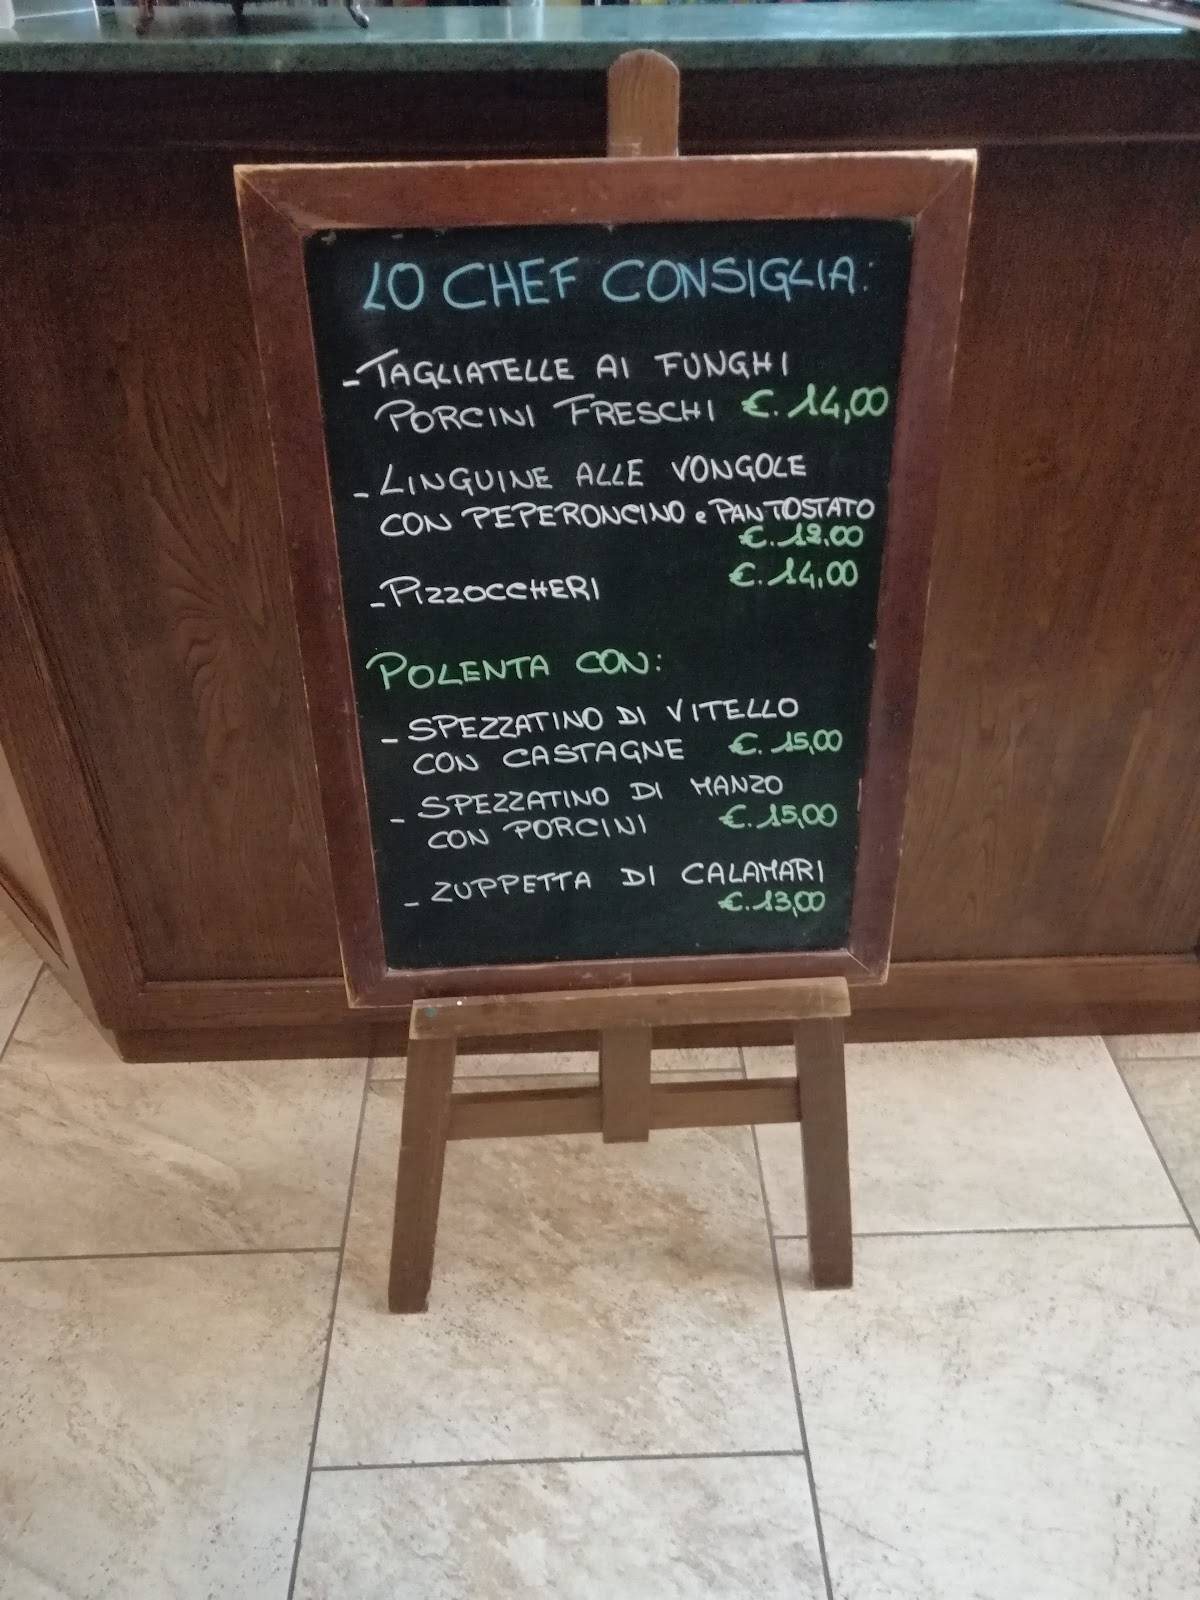 LO CHEF CONSIGLIA:
- TAGLIATELLE AI FUNGHI
PORCINI FRESCHI €. 14,00
- LINGUINE ALLE VONGOLE
CON PEPERONCINO e PANTOSTATO
€. 12,00
- PIZZOCCHERI €. 14,00
POLENTA CON:
- SPEZZATINO DI VITELLO
CON CASTAGNE €. 15,00
- SPEZZATINO DI MANZO
CON PORCINI €. 15,00
- ZUPPETTA DI CALAMARI
€. 13,00